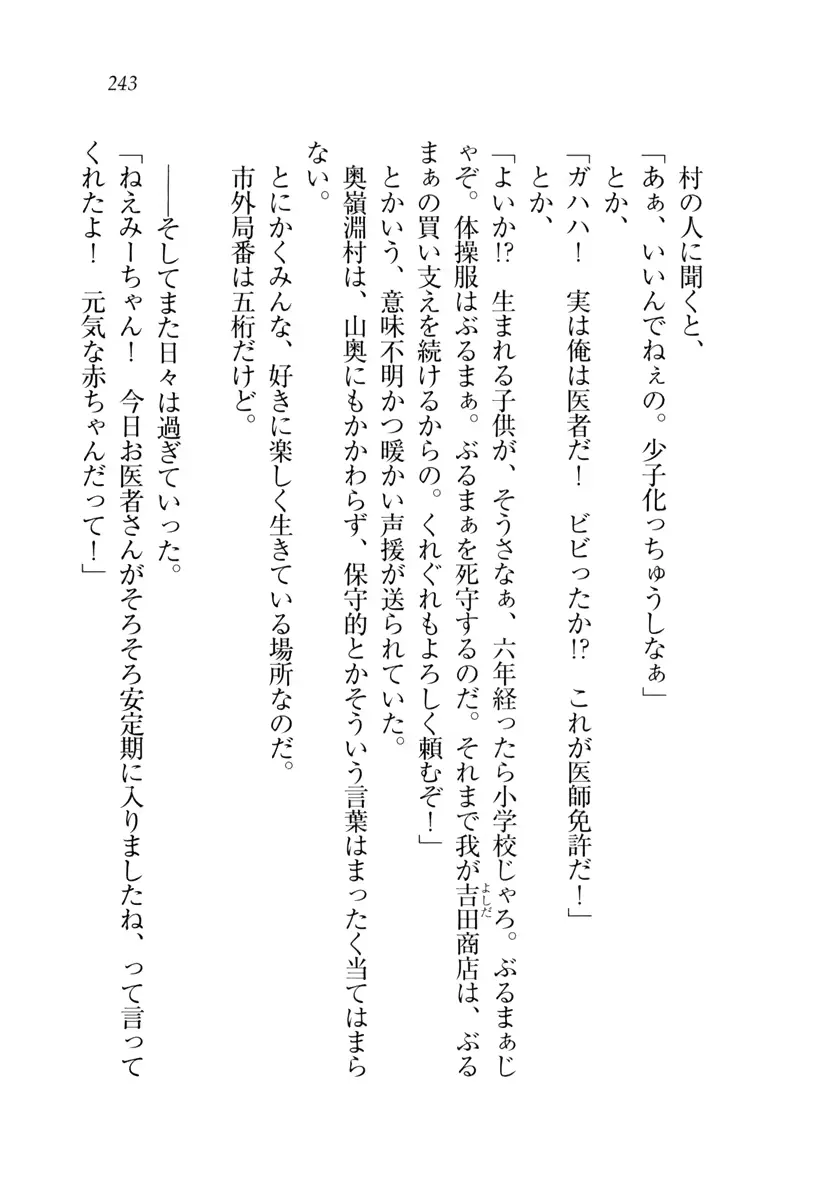 243
村の人に聞くと、
「あぁ、いいんでねぇの。少子化っちゅうしなぁ」
とか、
「ガハハ！　実は俺は医者だ！　ビビったか!?　これが医師免許だ！」
とか、
「よいか!?　生まれる子供が、そうさなぁ、六年経ったら小学校じゃろ。ぶるまぁじ
ゃぞ。体操服はぶるまぁ。ぶるまぁを死守するのだ。それまで我が吉田商店は、ぶる
よしだ
まぁの買い支えを続けるからの。くれぐれもよろしく頼むぞ！」
とかいう、意味不明かつ暖かい声援が送られていた。
奥嶺淵村は、山奥にもかかわらず、保守的とかそういう言葉はまったく当てはまら
ない。
とにかくみんな、好きに楽しく生きている場所なのだ。
市外局番は五桁だけど。
――そしてまた日々は過ぎていった。
「ねえみーちゃん！　今日お医者さんがそろそろ安定期に入りましたね、って言って
くれたよ！　元気な赤ちゃんだって！」